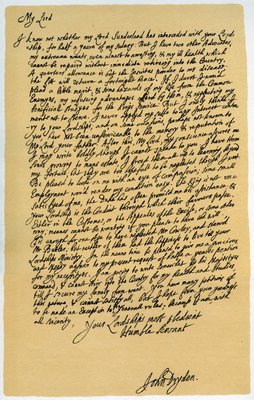 My Lord
I know not whether my Lord Sunderland has interceded with your Lord-
ship, for half a yeare of my salary: But I have two other Advocates,
my extreame wants, even almost to arresting, & my ill health, which
cannot be repaird without immediate retireing into the Country.
A quarters allowance is but the Jesuites powder to my disease;
The fitt will return a fortnight hence. If I durst I woud
plead a little merit, & some hazards of my life from the Common
Enemyes, my refuseing advantages offerd by them, & neglecting my
beneficiall studyes for the King's service: But I only thinke I
merite not to sterve. I never applyd myselfe to any Interest contra-
ry to your Lordship's, and on some occasions, perhaps not known to
you, have not been unserviceable to the memory & reputation of
My Lord your father. After this, My Lord, my conscience assures me
I may write boldly, though I cannot speake to you. I have three
Sonns growing to mans estate, I breed them all up to learning, beyond
my fortune; but they are too hopefull to be neglected though I want.
Be pleasd to looke on me with an eye of compassion; some small
Employment would render my condition easy. The King is not un-
satisfied of me, the Duke has often promisd me his assistance; &
Your Lordship is the Conduit through which their favours passe.
Either in the Customes, or the Appeales of the Excise, or some other
way; meanes cannot be wanting if you please to have the will.
Tis enough for one Age to have neglected Mr Cowley, and sterv'd
Mr Butler; but neither of them had the happiness to live till your
Lordship's Ministry. In the meane time be pleasd to give me a gracious
and speedy answer to my present request of halfe a yeares pention
for my necessityes. I am going to write somewhat by his Majestyes
command, & cannot stirr into the Country for my health and studies,
till I secure my family from want. You have many petitions of
this nature, & cannot satisfy all, but I hope from your goodness
to be made an Exception to your generall rules; because I am, with
all sincerity,
Your Lordship's most obedient
Humble Servant
John Dryden.